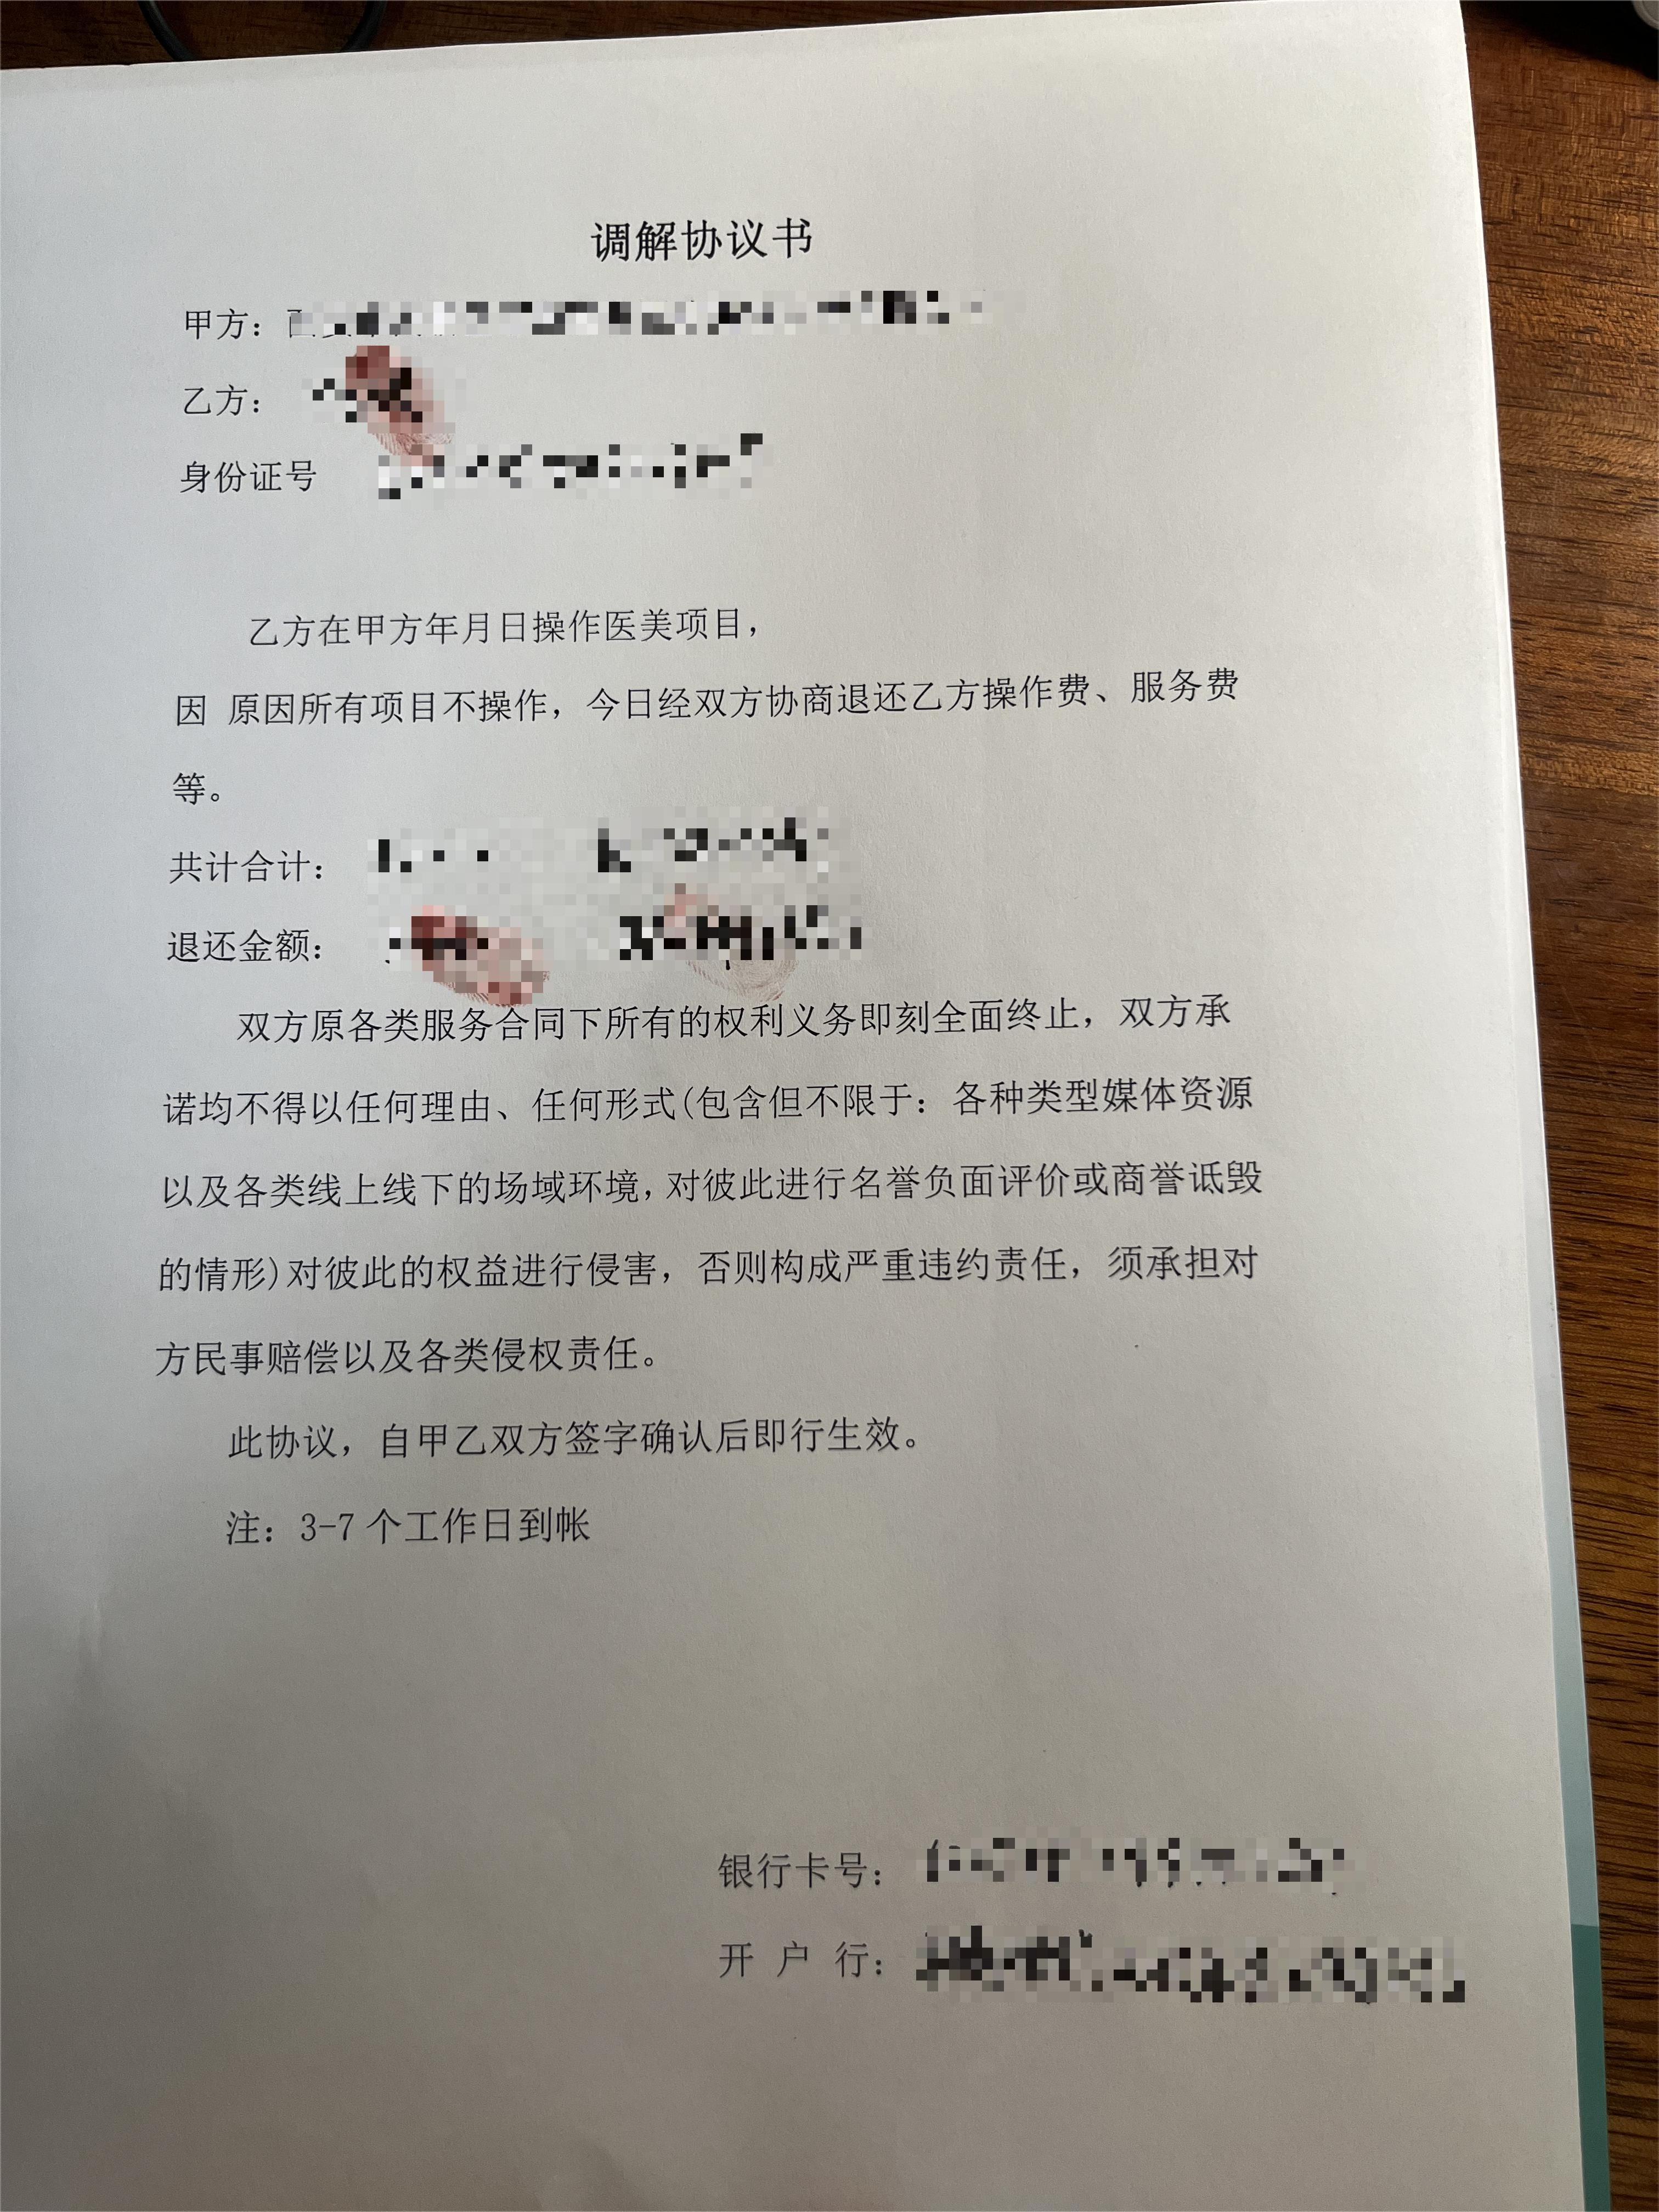 调解协议书
甲方：
乙方：
身份证号
乙方在甲方年月日操作医美项目，
因 原因所有项目不操作，今日经双方协商退还乙方操作费、服务费
等。
共计合计：
退还金额：
双方原各类服务合同下所有的权利义务即刻全面终止，双方承
诺均不得以任何理由、任何形式(包含但不限于：各种类型媒体资源
以及各类线上线下的场域环境,对彼此进行名誉负面评价或商誉诋毁
的情形)对彼此的权益进行侵害，否则构成严重违约责任，须承担对
方民事赔偿以及各类侵权责任。
此协议，自甲乙双方签字确认后即行生效。
注：3-7 个工作日到帐
银行卡号：
开 户 行：